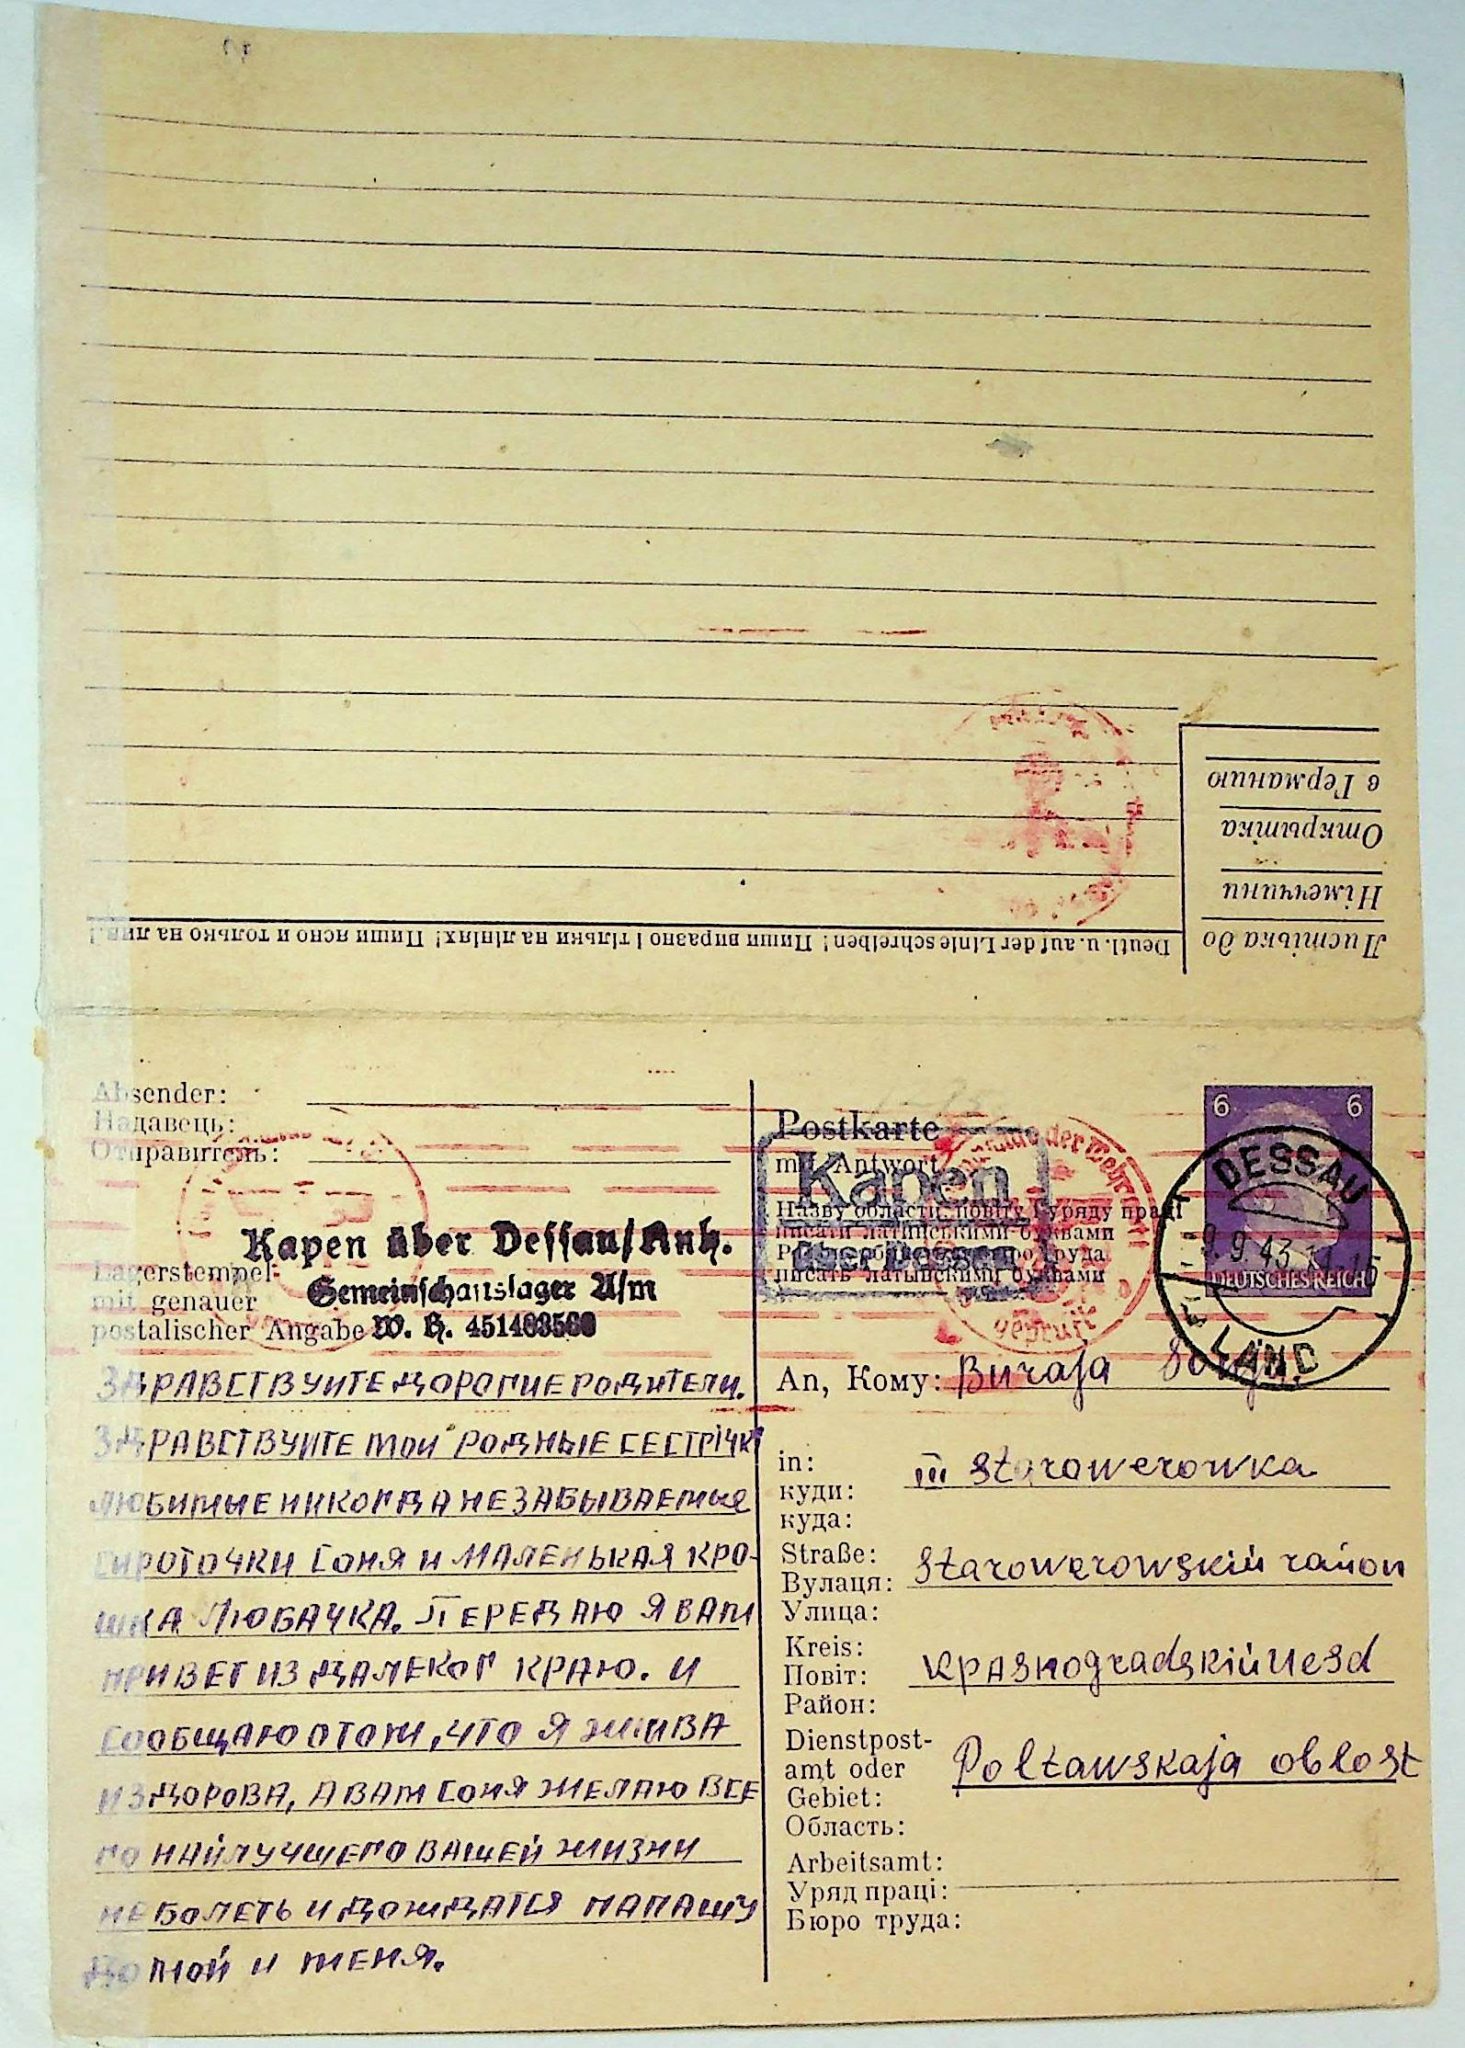 Deutl. u. auf der Linie schreiben! Пиши виразно і тільки на лініях! Пиши ясно и только на лин.!
Листівка до
Німеччини
Открытка
в Германию
Absender:
Надавець:
Отправитель:
Kapen über Dessau/Anh.
Gemeinschaftslager A/m
W. H. 451403560
Lagerstempel
mit genauer
postalischer Angabe
ЗДРАВСТВУИТЕ ДОРОГИЕ РОДИТЕЛИ.
ЗДРАВСТВУИТЕ МОИ РОДНЫЕ СЕСТРІЧКИ
ЛЮБИМЫЕ НИКОГДА НЕ ЗАБЫВАЕМЫЕ
СИРОТОЧКИ СОНЯ И МАЛЕНЬКАЯ КРО-
ШКА ЛЮБАЧКА. ПЕРЕДАЮ Я ВАМ
ПРИВЕТ ИЗ ДАЛЕКОГ КРАЮ. И
СООБЩАЮ О ТОМ, ЧТО Я ЖИВА
И ЗДОРОВА, А ВАМ СОНЯ ЖЕЛАЮ ВСЕ
ГО НАЙЛУЧШЕГО ВАШЕЙ ЖИЗНИ
НЕ БОЛЕТЬ И ДОЖДАТСЯ ПАПАШУ
ДОМОЙ И МЕНЯ.
Postkarte
mit Antwort
Назву области, повіту і уряду праці
писати латинськими буквами
писать латынскими буквами
Kapen
über Dessau
der Wehrmacht
geprüft
6 6
DEUTSCHES REICH
DESSAU
9.9.43
LAND
An, Кому: Buraja
in:
куди:
куда:
III Starowerowka
Straße:
Вулаця:
Улица:
Starowerowskiй rайon
Kreis:
Повіт:
Район:
Kраsnogradskiй uesd
Dienstpost-
amt oder
Gebiet:
Область:
Poltawskaja oblost
Arbeitsamt:
Уряд праці:
Бюро труда: